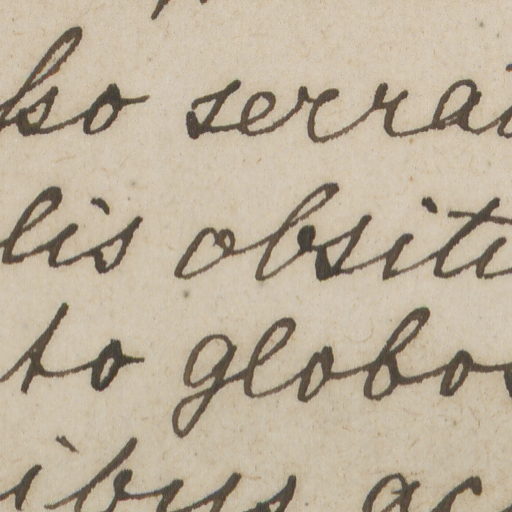 so serrat
lis obsiti
to globos
ibus ac